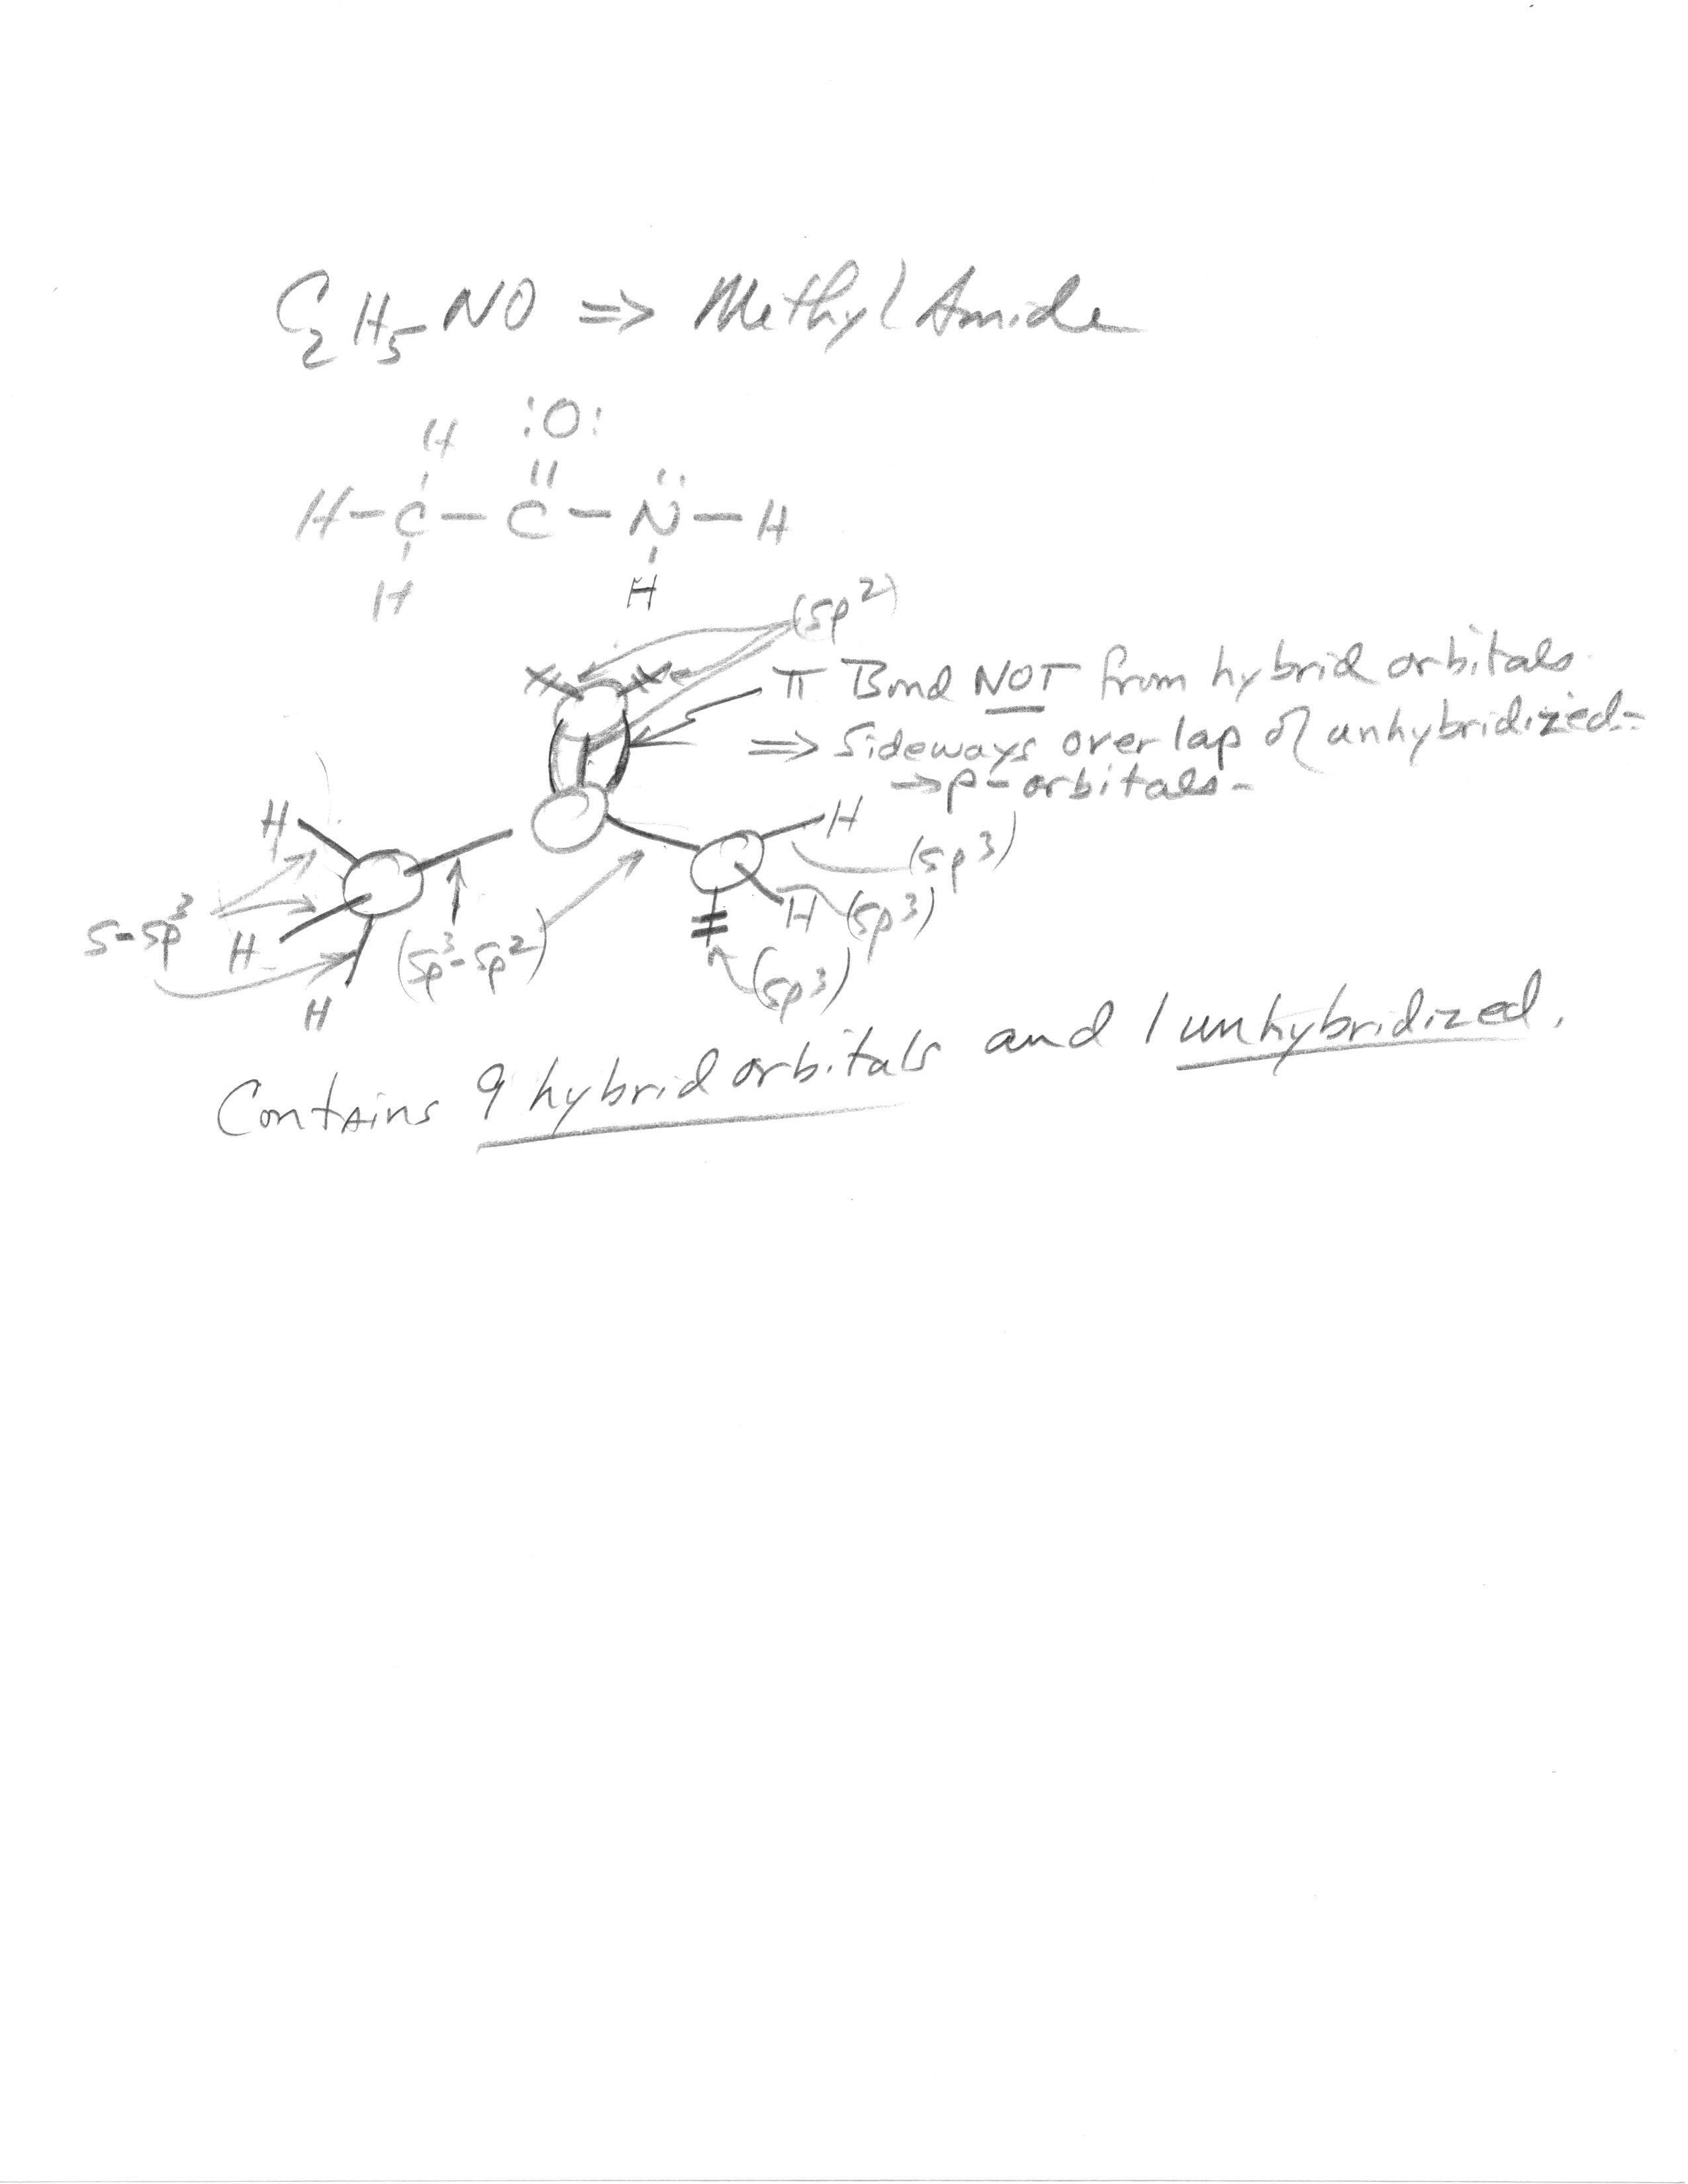 C₂H₅NO ⇒ Methyl Amide
H :O:
H-C-C-N̈-H
H H
(sp²)
π Bond NOT from hybrid orbitals
⇒ Sideways overlap of unhybridized-
→p-orbitals-
H H
(sp³)
s-sp³ H (sp³-sp²) H (sp³)
(sp³)
H
Contains 9 hybrid orbitals and 1 unhybridized.